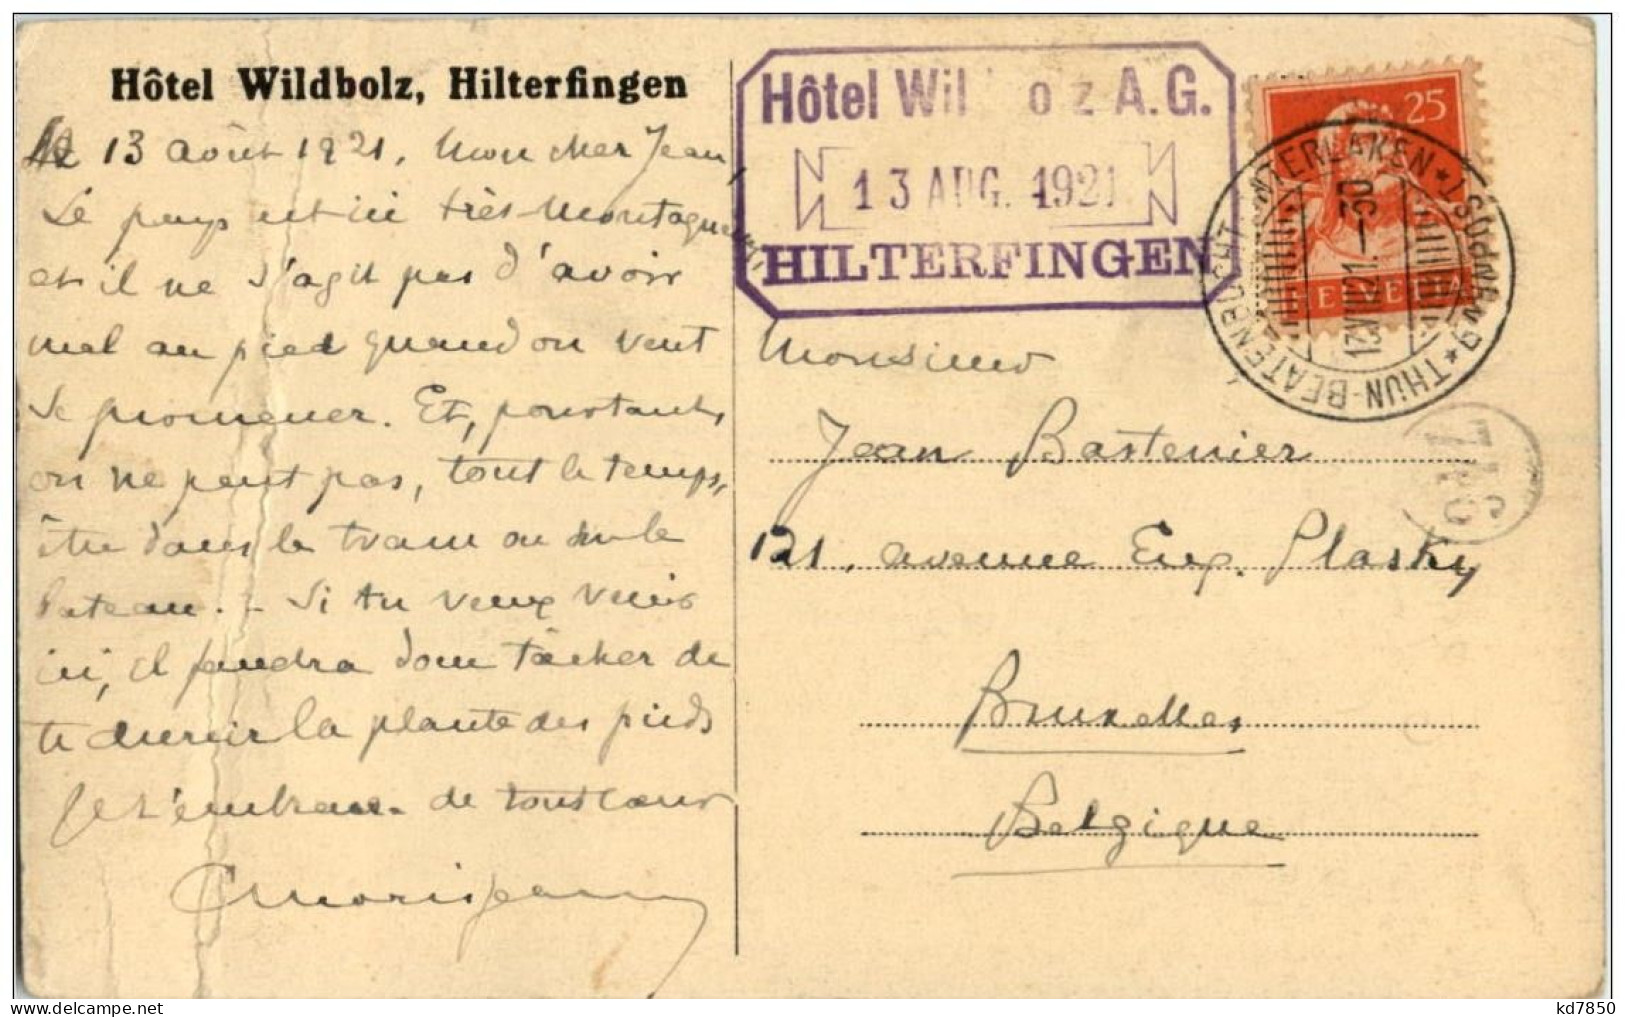 Hôtel Wildbolz, Hilterfingen
13 août 1921. Mon cher Jean,
Le pays est ici très montagneux
et il ne s'agit pas d'avoir
mal au pied quand on veut
se promener. Et, pourtant,
on ne peut pas, tout le temps,
être dans le tram ou sur le
bateau. - Si tu veux venir
ici, il faudra donc tâcher de
te durcir la plante des pieds
Je t'embrasse de tout coeur
Hôtel Wil oz A.G.
13 AUG. 1921
HILTERFINGEN
25
HELVETIA
THUN-BEATENBUCHT-INTERLAKEN
13.VIII.21.-30
Monsieur
Jean Bastenier
121, avenue Eug. Plasky
Bruxelles
Belgique
kd7850